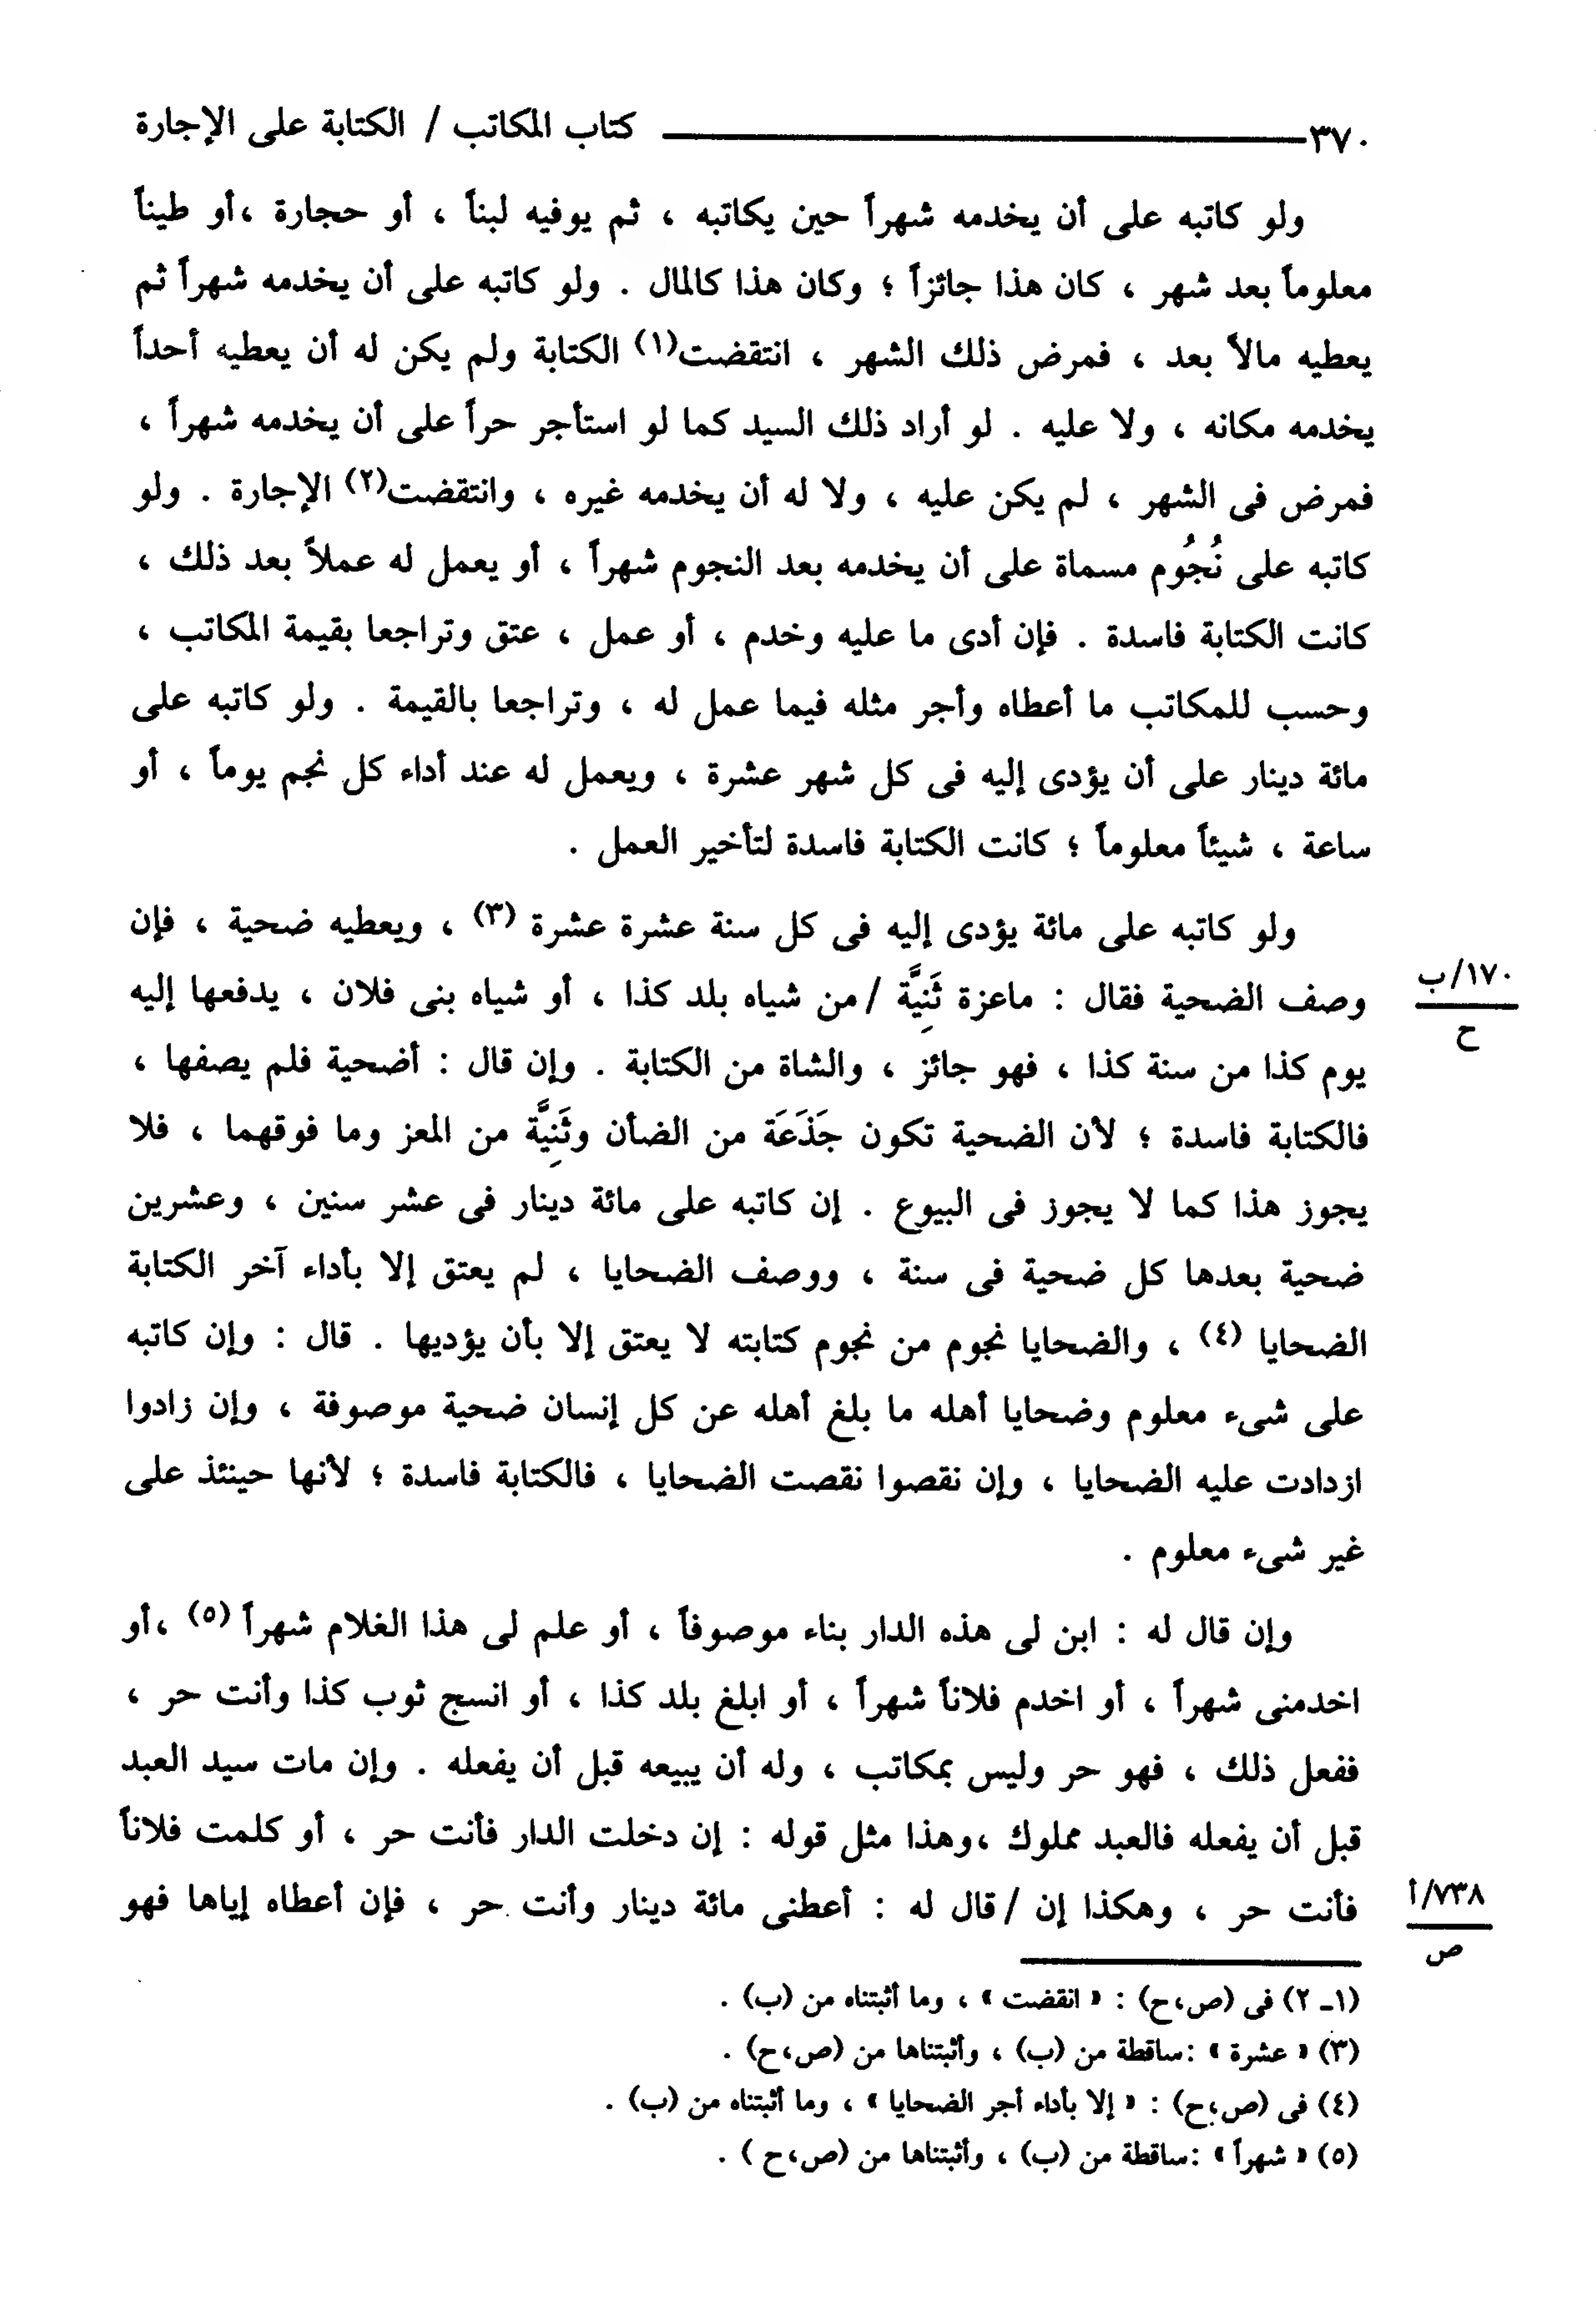 ٣٧٠ ـــــــ كتاب المكاتب / الكتابة على الإجارة
ولو كاتبه على أن يخدمه شهراً حين يكاتبه ، ثم يوفيه لبناً ، أو حجارة ،أو طيناً
معلوماً بعد شهر ، كان هذا جائزاً ؛ وكان هذا كالمال . ولو كاتبه على أن يخدمه شهراً ثم
يعطيه مالاً بعد ، فمرض ذلك الشهر ، انتقضت(١) الكتابة ولم يكن له أن يعطيه أحداً
يخدمه مكانه ، ولا عليه . لو أراد ذلك السيد كما لو استأجر حراً على أن يخدمه شهراً ،
فمرض فى الشهر ، لم يكن عليه ، ولا له أن يخدمه غيره ، وانتقضت(٢) الإجارة . ولو
كاتبه على نُجُوم مسماة على أن يخدمه بعد النجوم شهراً ، أو يعمل له عملاً بعد ذلك ،
كانت الكتابة فاسدة . فإن أدى ما عليه وخدم ، أو عمل ، عتق وتراجعا بقيمة المكاتب ،
وحسب للمكاتب ما أعطاه وأجر مثله فيما عمل له ، وتراجعا بالقيمة . ولو كاتبه على
مائة دينار على أن يؤدى إليه فى كل شهر عشرة ، ويعمل له عند أداء كل نجم يوماً ، أو
ساعة ، شيئاً معلوماً ؛ كانت الكتابة فاسدة لتأخير العمل .
ولو كاتبه على مائة يؤدى إليه فى كل سنة عشرة عشرة (٣) ، ويعطيه ضحية ، فإن
١٧٠/ب
وصف الضحية فقال : ماعزة ثَنِيَّة /من شياه بلد كذا ، أو شياه بنى فلان ، يدفعها إليه
ح
يوم كذا من سنة كذا ، فهو جائز ، والشاة من الكتابة . وإن قال : أضحية فلم يصفها ،
فالكتابة فاسدة ؛ لأن الضحية تكون جَذَعَة من الضأن وثَنِيَّة من المعز وما فوقهما ، فلا
يجوز هذا كما لا يجوز فى البيوع . إن كاتبه على مائة دينار فى عشر سنين ، وعشرين
ضحية بعدها كل ضحية فى سنة ، ووصف الضحايا ، لم يعتق إلا بأداء آخر الكتابة
الضحايا (٤) ، والضحايا نجوم من نجوم كتابته لا يعتق إلا بأن يؤديها . قال : وإن كاتبه
على شىء معلوم وضحايا أهله ما بلغ أهله عن كل إنسان ضحية موصوفة ، وإن زادوا
ازدادت عليه الضحايا ، وإن نقصوا نقصت الضحايا ، فالكتابة فاسدة ؛ لأنها حينئذ على
غير شىء معلوم .
وإن قال له : ابن لى هذه الدار بناء موصوفاً ، أو علم لى هذا الغلام شهراً (٥) ،أو
اخدمنى شهراً ، أو اخدم فلاناً شهراً ، أو ابلغ بلد كذا ، أو انسج ثوب كذا وأنت حر ،
ففعل ذلك ، فهو حر وليس بمكاتب ، وله أن يبيعه قبل أن يفعله . وإن مات سيد العبد
قبل أن يفعله فالعبد مملوك ،وهذا مثل قوله : إن دخلت الدار فأنت حر ، أو كلمت فلاناً
٧٣٨/أ
فأنت حر ، وهكذا إن /قال له : أعطنى مائة دينار وأنت حر ، فإن أعطاه إياها فهو
ص
(١ـ ٢) فى (ص،ح) : « انقضت » ، وما أثبتناه من (ب) .
(٣) « عشرة » :ساقطة من (ب) ، وأثبتناها من (ص،ح) .
(٤) فى (ص،ح) : « إلا بأداء أجر الضحايا » ، وما أثبتناه من (ب) .
(٥) « شهراً » :ساقطة من (ب) ، وأثبتناها من (ص،ح ) .